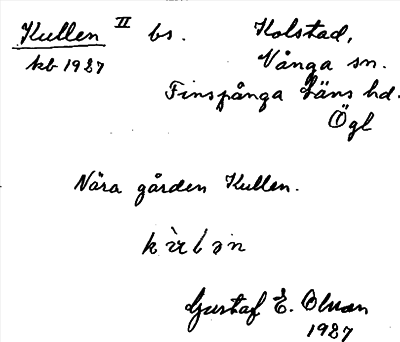 Kullen II bs. Kolstad,
kb 1927 Vånga sn.
Finspånga läns hd.
Ögl
Nära gården Kullen.
Gustaf E. Olson
1927